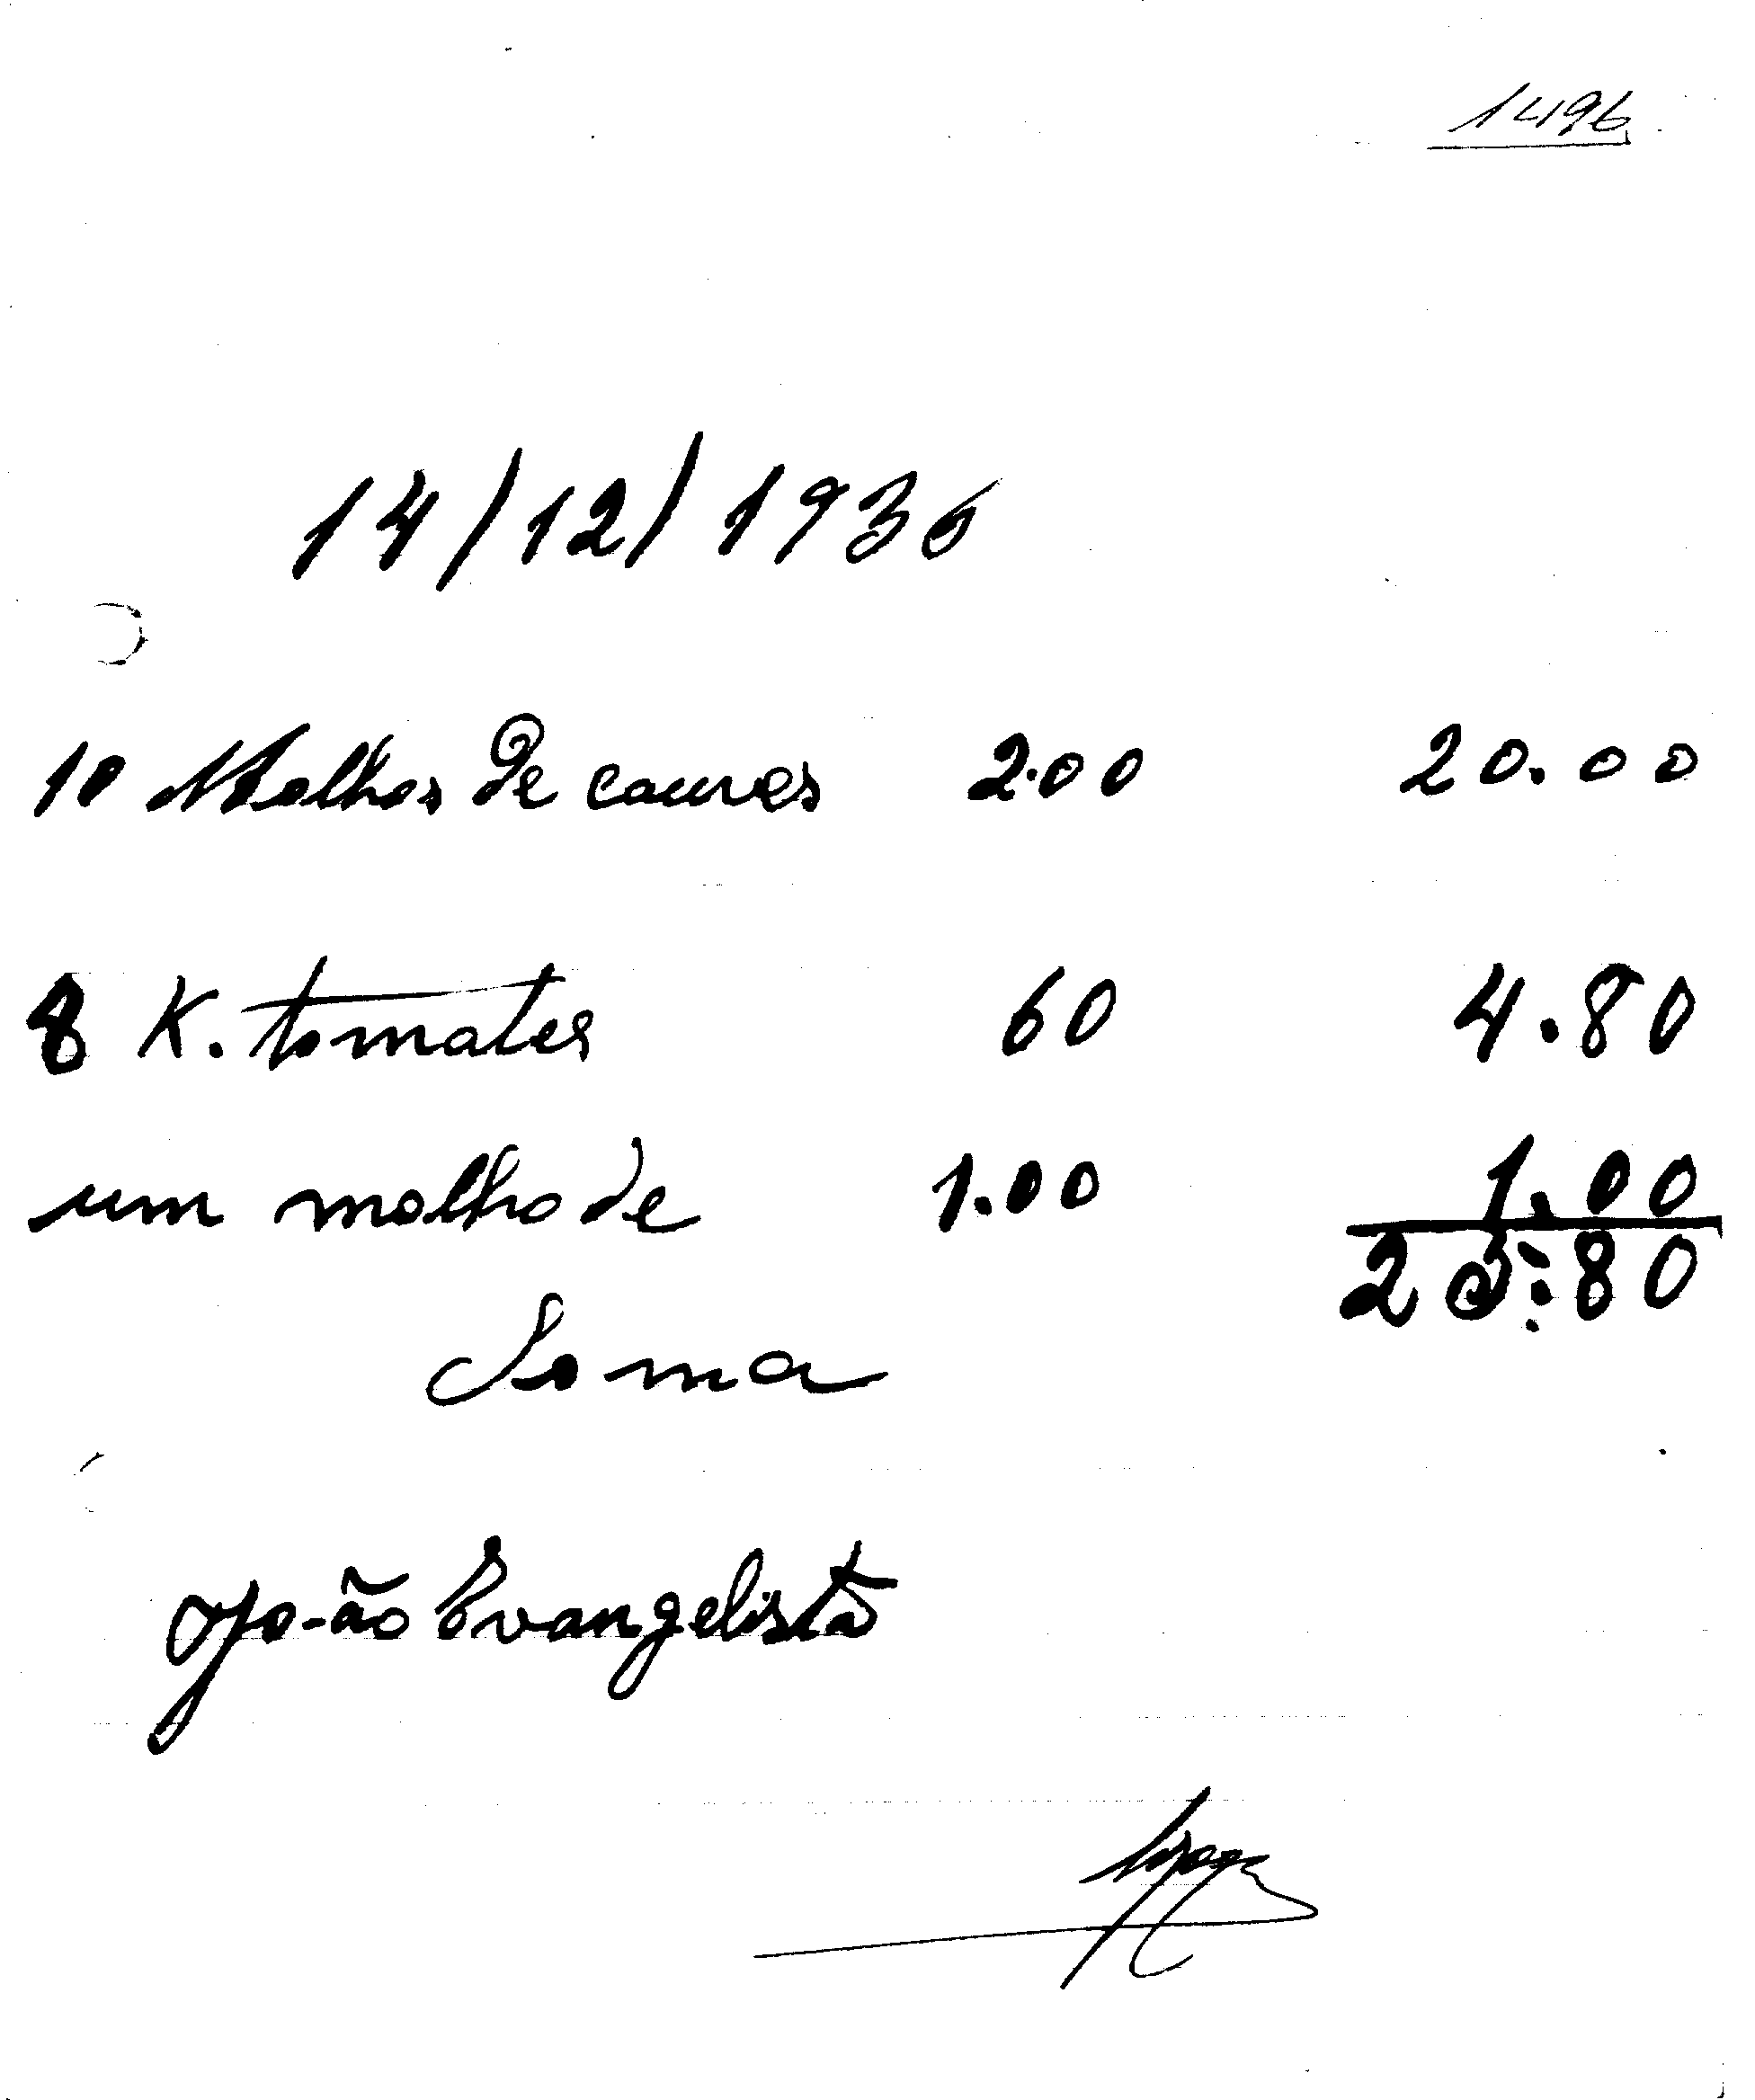 1496
14/12/1936
10 Molhos de couves 2.00 20.00
8 K. tomates 60 4.80
um molho de 1.00 1.00
25.80
Soma
João Evangelista